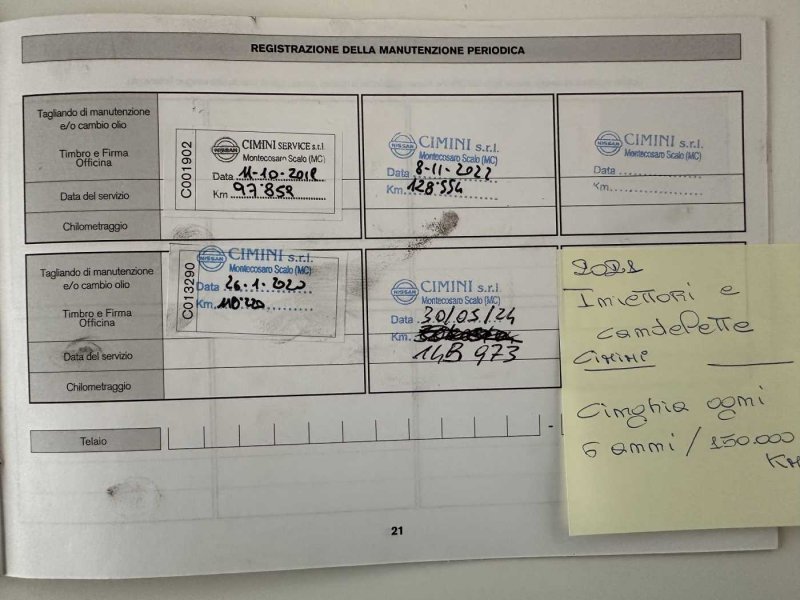 REGISTRAZIONE DELLA MANUTENZIONE PERIODICA
Tagliando di manutenzione
e/o cambio olio
Timbro e Firma
Officina
Data del servizio
Chilometraggio
C001902
NISSAN
CIMINI SERVICE s.r.l.
Montecosaro Scalo (MC)
Data 11-10-2018
Km. 97'858
NISSAN
CIMINI s.r.l.
Montecosaro Scalo (MC)
Data 8-11-2022
Km. 128'554
NISSAN
CIMINI s.r.l.
Montecosaro Scalo (MC)
Data
Km.
Tagliando di manutenzione
e/o cambio olio
Timbro e Firma
Officina
Data del servizio
Chilometraggio
C013290
NISSAN
CIMINI s.r.l.
Montecosaro Scalo (MC)
Data 26-1-2020
Km.
NISSAN
CIMINI s.r.l.
Montecosaro Scalo (MC)
Data 30/05/24
Km.
148 973
Iniettori e
candelette
Cimini
Cinghia ogni
6 anni / 150.000
KM
Telaio
-
21